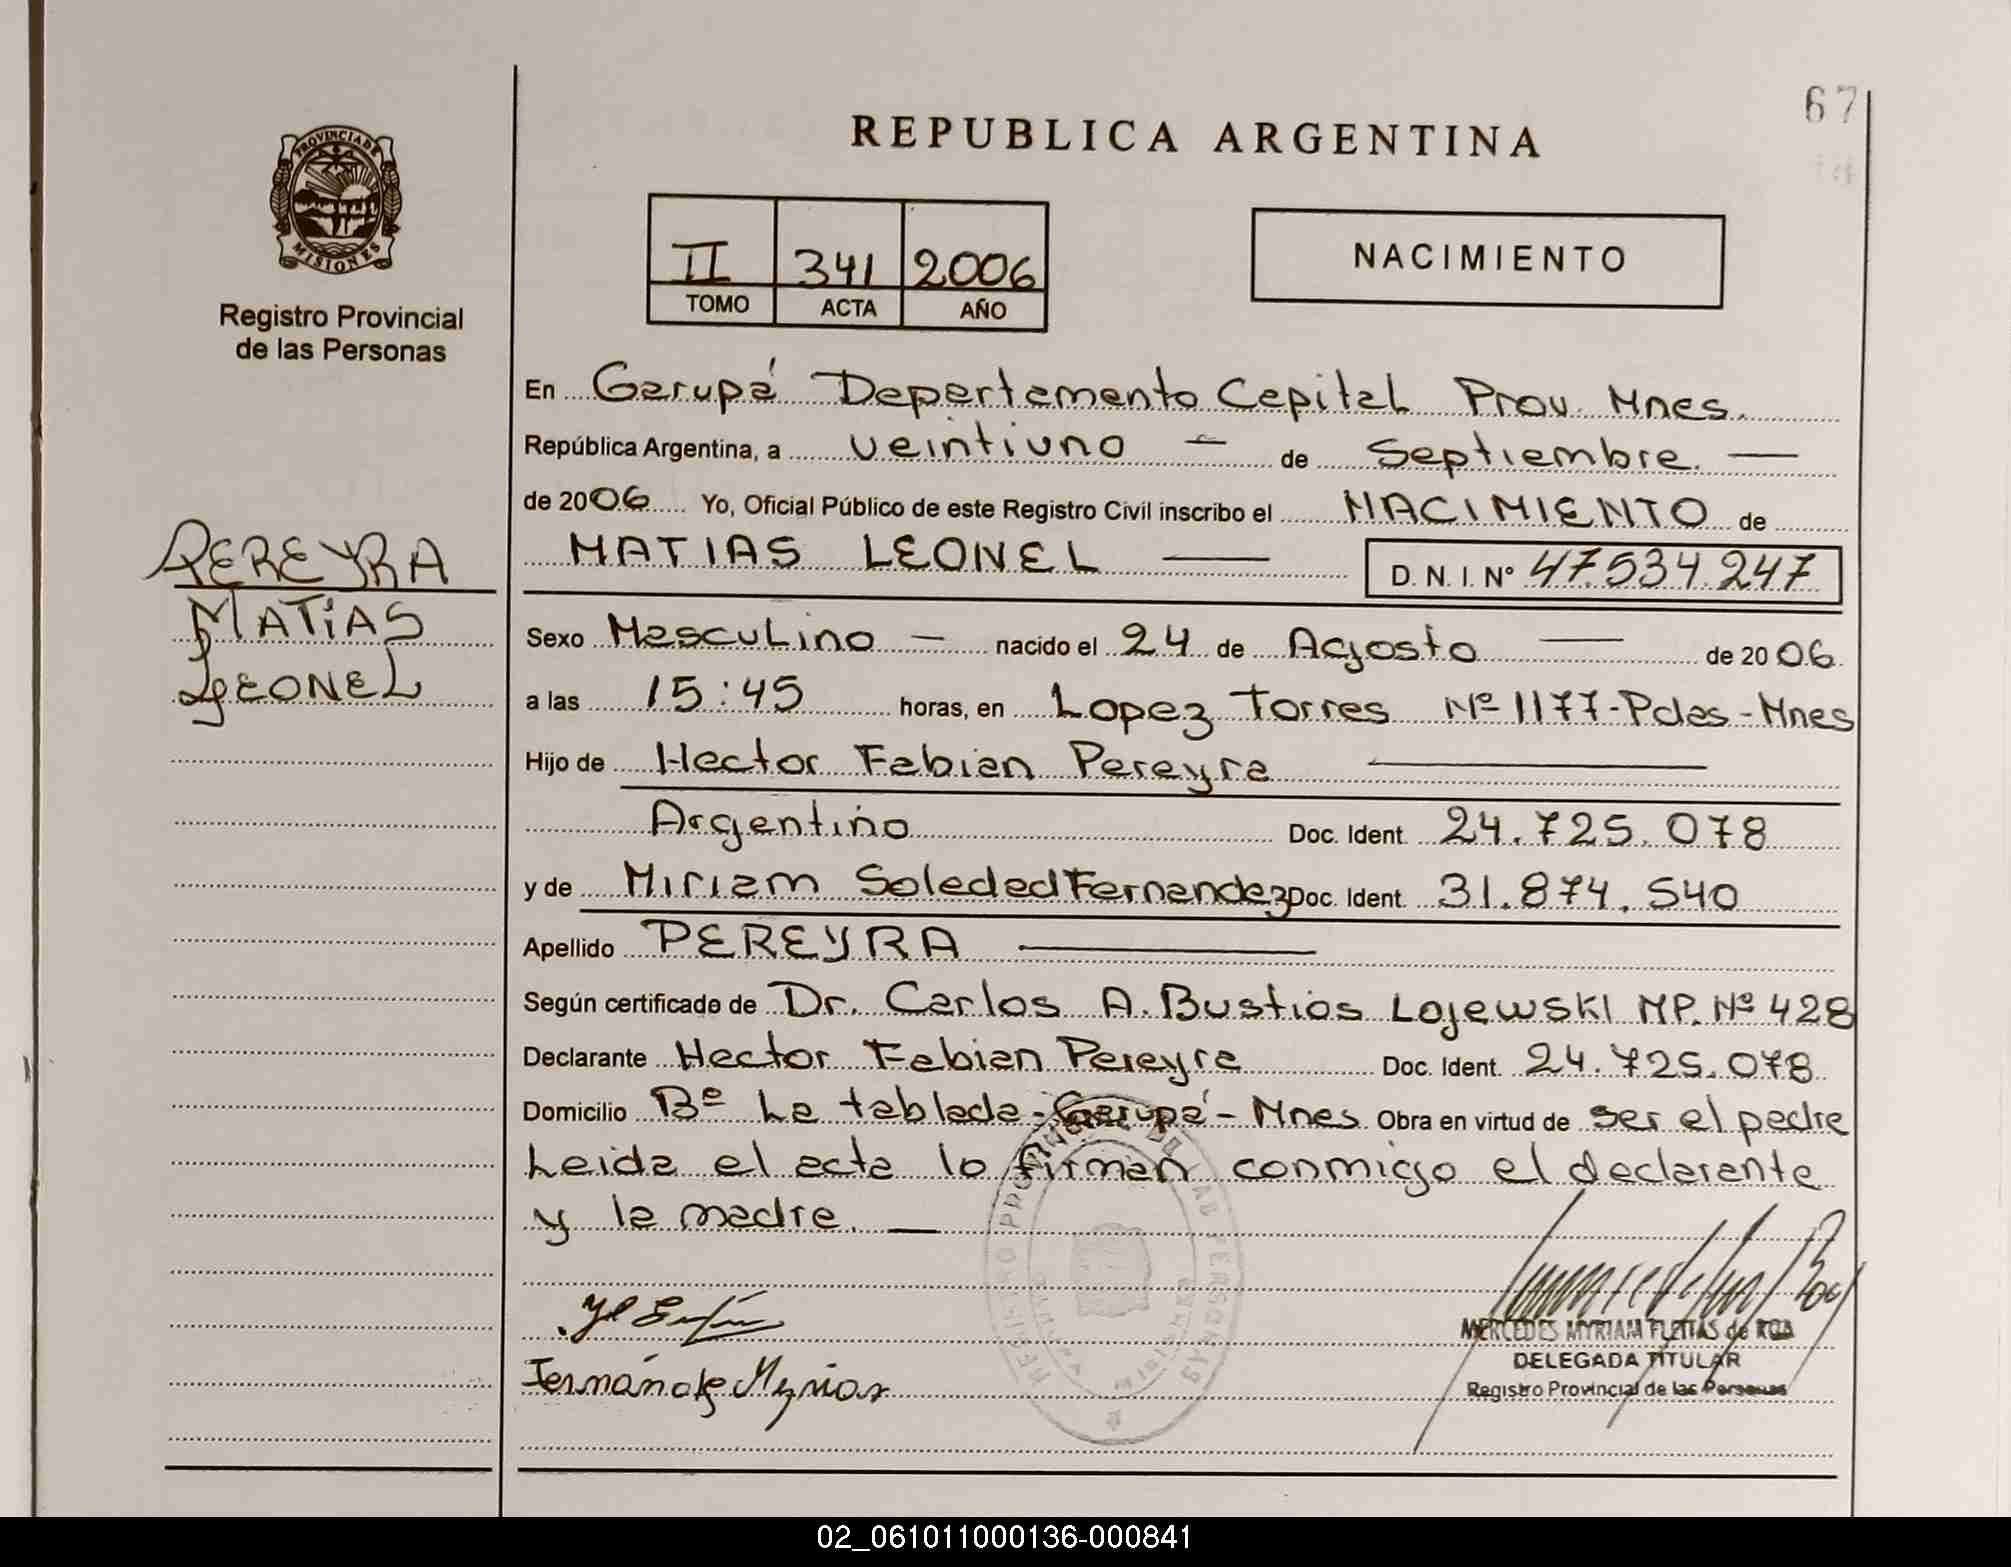 67
REPUBLICA ARGENTINA
PROVINCIA DE
MISIONES
Registro Provincial
de las Personas
II 341 2006
TOMO ACTA AÑO
NACIMIENTO
En Garupá Departamento Capital Prov. Mnes.
República Argentina, a veintiuno — de Septiembre. —
de 2006 Yo, Oficial Público de este Registro Civil inscribo el NACIMIENTO de
MATIAS LEONEL — D. N. I. Nº 47.534.247
PEREYRA
MATiAS
LEONEL
Sexo Masculino — nacido el 24 de Agosto — de 2006.
a las 15:45 horas, en Lopez Torres Nº 1177-Pdas-Mnes
Hijo de Hector Fabian Pereyra —
Argentino Doc. Ident. 24.725.078
y de Miriam Soledad Fernandez Doc. Ident. 31.874.540
Apellido PEREYRA —
Según certificado de Dr. Carlos A. Bustios Lojewski MP. Nº 428
Declarante Hector Fabian Pereyra Doc. Ident. 24.725.078
Domicilio Bº La tablada-Garupá-Mnes Obra en virtud de ser el padre
Leida el acta lo firman conmigo el declarante
y la madre. —
REGISTRO PROVINCIAL DE LAS PERSONAS
MISIONES
MERCEDES MYRIAM FLEITAS de ROA
DELEGADA TITULAR
Registro Provincial de las Personas
02_061011000136-000841